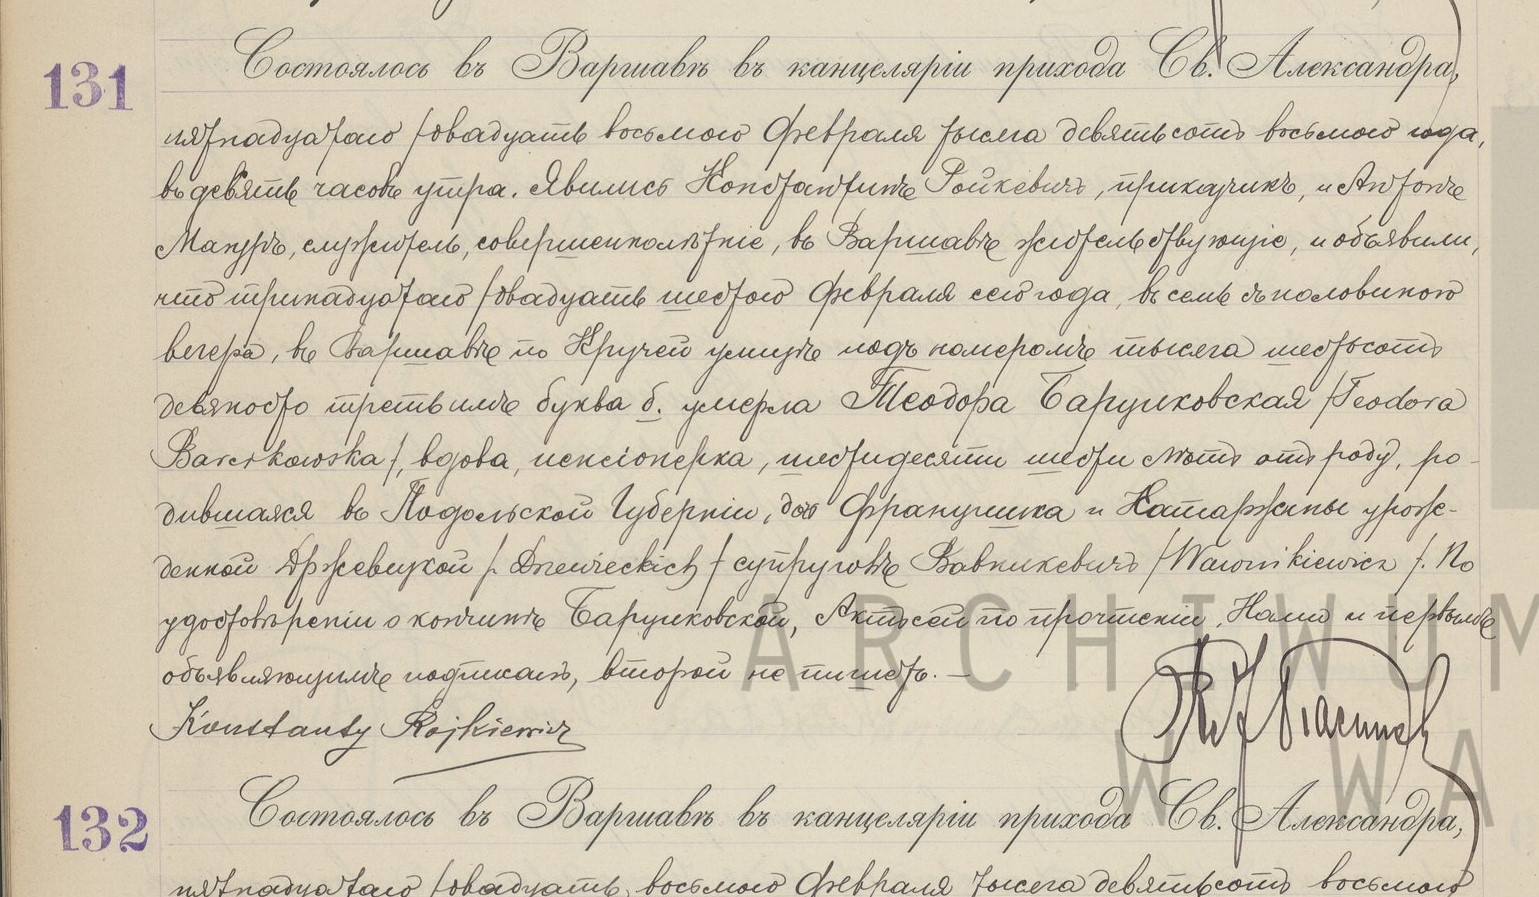 131
Состоялось въ Варшавѣ въ канцеляріи прихода Св. Александра,
пятнадцатаго /двадцать восьмого Февраля тысяча девятьсотъ восьмого года,
въ девять часовъ утра. Явились Константинъ Ройкевичъ, прикащикъ, и Антонъ
служитель, совершеннолѣтніе, въ Варшавѣ жительствующіе, и объявили,
что тринадцатаго /двадцать шестого Февраля сего года, въ семь съ половиною
вечера, въ Варшавѣ по Кручей улицѣ подъ номеромъ тысяча шестьсотъ
девяносто третьимъ буква б. умерла Теодора Барцчковская /Teodora
Barczkowska/, вдова, пенсіонерка, шестидесяти шести лѣтъ отъ роду, ро-
дившаяся въ Подольской Губерніи, дочь Францишка и Катаржины урож-
денной Држевецкой /Drzewieckich/ супруговъ Вавникевичъ /Wawnikiewicz/. По
удостовѣреніи о кончинѣ Барцчковской, Актъ сей по прочтеніи, Нами и первымъ
объявляющимъ подписанъ, второй не пишетъ. —
Konstanty Rojkiewicz
ARCHIWUM
W WA
132
Состоялось въ Варшавѣ въ канцеляріи прихода Св. Александра,
пятнадцатаго /двадцать восьмого Февраля тысяча девятьсотъ восьмого